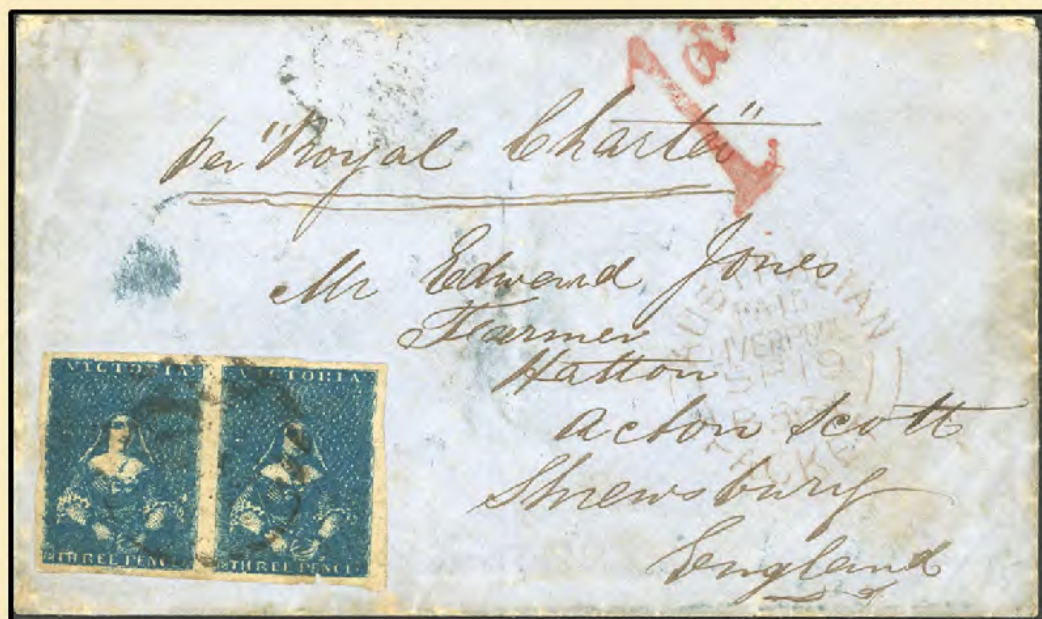 1d.
per "Royal Charter"
Mr Edward Jones
Farmer
Hatton
Acton Scott
Shrewsbury
England
AUSTRALIAN
PAID
LIVERPOOL
SP 19
PACKET
VICTORIA VICTORIA
THREE PENCE THREE PENCE